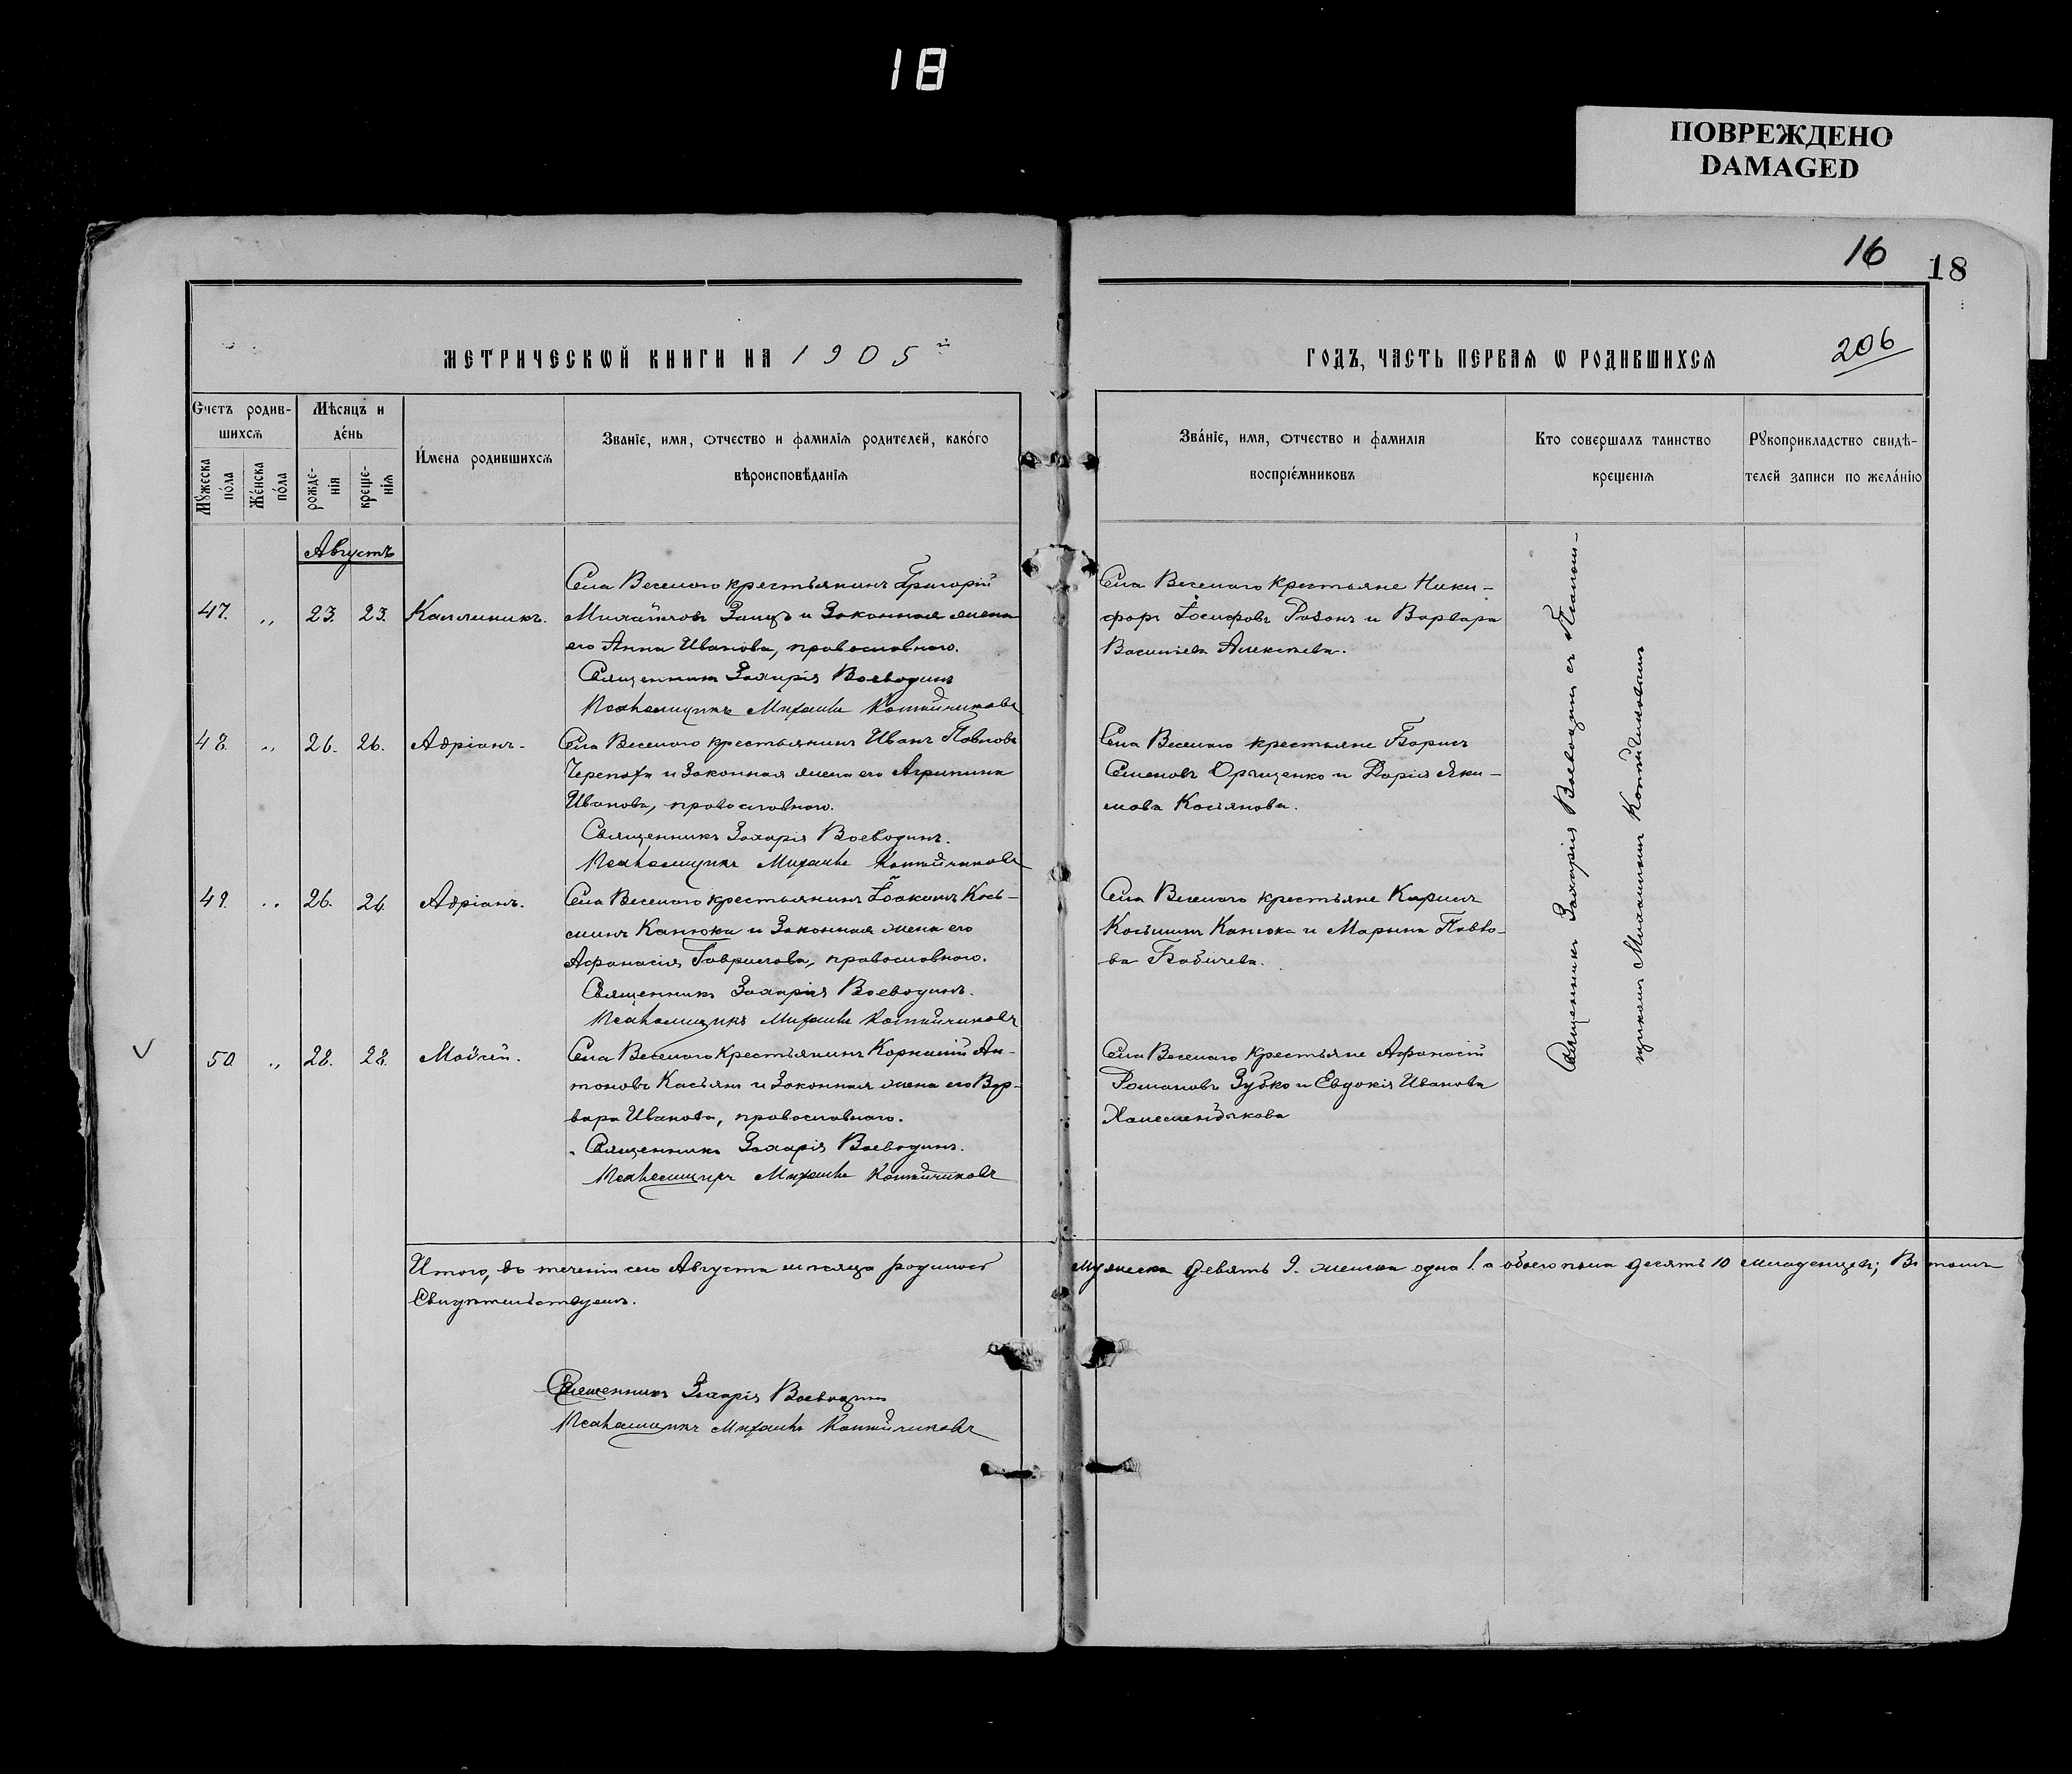 18
ПОВРЕЖДЕНО
DAMAGED
16
18
МЕТРИЧЕСКѠЙ КНИГИ НА 1905й
ГОДЪ, ЧАСТЬ ПЕРВАЯ Ѡ РОДИВШИХСЯ
206
Счетъ родив-
шихся
Мѣсяцъ и
де́нь
Мꙋжеска
по́ла
Же́нска
по́ла
рожде-
нія
креще-
нія
И́мена родившихся
Званіе, имя, ѻтчество и фамилія родителей, како́го
вѣроисповѣ́данія
Зва́ніе, имя, ѻтчество и фамилія
воспрїе́мниковъ
Кто совершалъ таинство
крещенія
Рꙋкоприкладство свидѣ-
телей записи по жела́нію
Августъ
47. „ 23. 23. Каллиникъ.
Села Веселаго крестьянинъ Григорій
Михайловъ Заицъ и законная жена
его Анна Иванова, православнаго.
Священникъ Захарія Воеводинъ
Псаломщикъ Михаилъ
Села Веселаго крестьяне Ники-
форъ Іосифовъ и Варвара
Васильева Алексѣева.
48. „ 26. 26. Адріанъ.
Села Веселаго крестьянинъ Иванъ Павловъ
Черепаха и законная жена его Агрипина
Иванова, православнаго.
Священникъ Захарія Воеводинъ.
Псаломщикъ Михаилъ
Села Веселаго крестьяне Борисъ
Семеновъ и Дарія Яки-
мова Косьянова.
49. „ 26. 26. Адріанъ.
Села Веселаго крестьянинъ Іоакимъ Кось-
минъ Канюка и законная жена его
Афанасія Гаврилова, православнаго.
Священникъ Захарія Воеводинъ.
Псаломщикъ Михаилъ
Села Веселаго крестьяне Кириллъ
Косьминъ Канюка и Марина Павло-
ва Бабичева.
50. „ 28. 28. Мойсей.
Села Веселаго крестьянинъ Корнилій Ан-
тоновъ Касьянъ и законная жена его Вар-
вара Иванова, православнаго.
Священникъ Захарія Воеводинъ.
Псаломщикъ Михаилъ
Села Веселаго крестьяне Афанасій
Романовъ Зубко и Евдокія Иванова
Священникъ Захарія Воеводинъ съ Псалом-
щикомъ Михаиломъ
Итого, въ теченіи сего Августа мѣсяца родилось мужеска девять 9. женска одна 1. а обоего пола десять 10 младенцевъ; Въ томъ
Свидѣтельствуемъ.
Священникъ Захарія Воеводинъ
Псаломщикъ Михаилъ